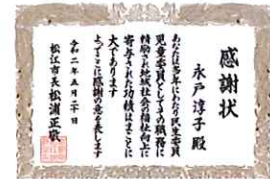 感謝状
永戸淳子殿
あなたは多年にわたり民生委員
児童委員としてその職務に
精励され地域社会の福祉向上に
寄与された功績はまことに
大であります
よってここに感謝の意を表します
令和二年五月二十日
松江市長松浦正敬